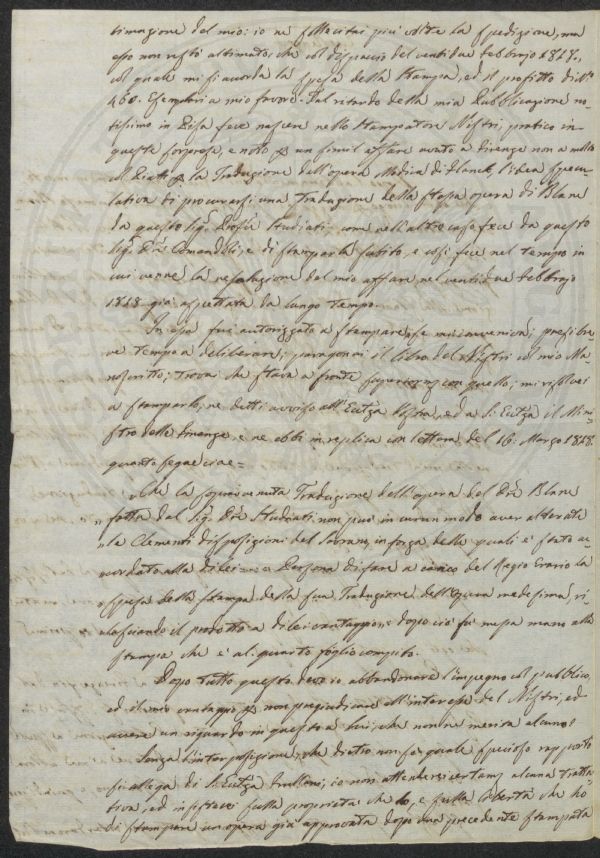 timazione del mio: io ne sollecitai più volte la spedizione, ma
esso non restò ultimato, che col dispaccio del ventidue Febbrajo 1818.,
col quale mi si accorda la spesa della stampa, ed il profitto di N.º
460. Esemplari a mio favore. Dal ritardo della mia Pubblicazione no-
tissimo in Pisa fece nascere nello stampatore Nistri, pratico in
queste sorprese, e noto p un simil affare avuto a Firenze non a molto
col Piatti p la Traduzione dell'opera Medica di Planck, l'idea specu-
lativa di procurarsi una Traduzione della stessa opera di Blane
da questo Sig.e Profre Studiati; come nell'altro caso fece da questo
Sig.e Dre Comandoli; e di stamparla subito, e così fece nel tempo in
cui venne la resoluzione del mio affare nel ventidue Febbrajo
1818 già aspettata da lungo tempo.
In essa fui autorizzato a stampare, se mi conveniva; presi bre-
ve tempo a deliberare; paragonai il libro del Nistri col mio Ma-
noscritto; trovai che stava a fronte con quello; mi risolvei
a stamparlo; ne detti avviso all'Ecc̃za Vostra, ed a S: Ecc̃za il Mini-
stro delle Finanze, e ne ebbi in replica con lettera del 16. Marzo 1818.
quanto segue cioè =
"Che la sopravvenuta Traduzione dell'opera del Dre Blane
"fatta dal Sig.e Dre Studiati non può in verun modo aver alterate
"le Clementi disposizioni del Sovrano, in forza delle quali è stato ac-
cordato alla di lei Persona di fare a carico del Regio Erario la
spesa della stampa della sua Traduzione dell'Opera medesima, ri-
lasciando il prodotto a di lei vantaggio = dopo ciò fu messa mano alla
stampa che è al quarto foglio compito.
Dopo tutto questo devo io abbandonare l'impegno col pubblico,
ed il mio vantaggio p non pregiudicare all'interesse del Nistri, ed
avere un riguardo in questo a lui, che non ne merita alcuno!
Senza l'interposizione, che dietro non so quale specioso rapporto
si allega di S: Ecc̃za Frullani, io non attenderei certamẽ alcuna tratta-
tiva, ed insisterei sulla proprietà che ho, e sulla libertà che hò
di stampare un'opera già approvata dopo una precedente stampata